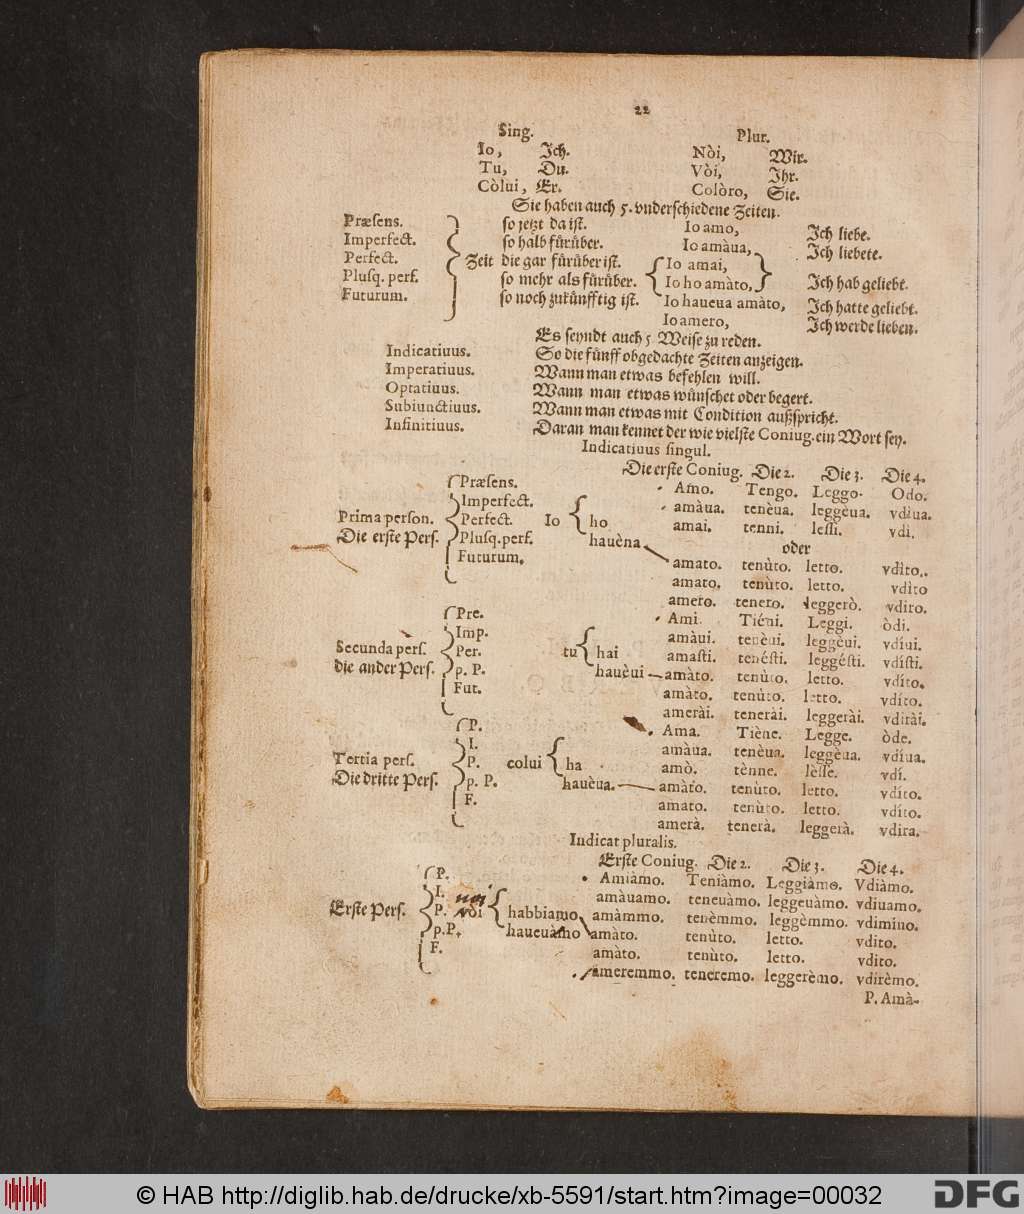 22
Sing. Plur.
Io, Ich. Nòi, Wir.
Tu, Du. Vòi, Ihr.
Còlui, Er. Colòro, Sie.
Sie haben auch 5. vnderschiedene Zeiten.
Præsens. so jetzt da ist. Io amo, Ich liebe.
Imperfect. so halb fürüber. Io amàua, Ich liebete.
Perfect. Zeit die gar fürüber ist. Io amai,
Plusq. perf. so mehr als fürüber. Io ho amàto, Ich hab geliebt.
Futurum. so noch zukünfftig ist. Io haueua amàto, Ich hatte geliebt.
Io amero, Ich werde lieben.
Es seyndt auch 5 Weise zu reden.
Indicatiuus. So die fünff obgedachte Zeiten anzeigen.
Imperatiuus. Wann man etwas befehlen will.
Optatiuus. Wann man etwas wünschet oder begert.
Subiunctiuus. Wann man etwas mit Condition außspricht.
Infinitiuus. Daran man kennet der wie vielste Coniug. ein Wort sey.
Indicatiuus singul.
Die erste Coniug. Die 2. Die 3. Die 4.
Præsens. Amo. Tengo. Leggo. Odo.
Imperfect. amàua. tenèua. leggèua. vdìua.
Prima person. Perfect. Io ho amai. tenni. lessi. vdì.
Die erste Pers. Plusq. perf. hauèna oder
Futurum. amato. tenùto. letto. vdìto.
amato. tenùto. letto. vdìto
amero. tenero. leggerò. vdiro.
Pre. Ami. Tiéni. Leggi. òdi.
Imp. amàui. tenèui. leggèui. vdíui.
Secunda pers. Per. tu hai amasti. tenésti. leggésti. vdísti.
die ander Pers. p. P. hauèui amàto. tenùto. letto. vdíto.
Fut. amàto. tenùto. letto. vdíto.
amerài. tenerài. leggerài. vdirài.
P. Ama. Tiène. Legge. òde.
I. amàua. tenèua. leggèua. vdíua.
Tertia pers. P. colui ha amò. tènne. lèsse. vdí.
Die dritte Pers. p. P. hauèua. amàto. tenùto. letto. vdíto.
F. amato. tenùto. letto. vdíto.
amerà. tenerà. leggerà. vdira.
Indicat pluralis.
Erste Coniug. Die 2. Die 3. Die 4.
P. Amiàmo. Teniàmo. Leggiàmo. Vdiàmo.
I. noi amàuamo. teneuàmo. leggeuàmo. vdiuamo.
Erste Pers. P. vòi habbiamo amàmmo. tenèmmo. leggèmmo. vdimíno.
p. P. haueuàmo amàto. tenùto. letto. vdito.
F. amàto. tenùto. letto. vdito.
ameremmo. teneremo. leggerèmo. vdirèmo.
P. Amà-
© HAB http://diglib.hab.de/drucke/xb-5591/start.htm?image=00032
DFG